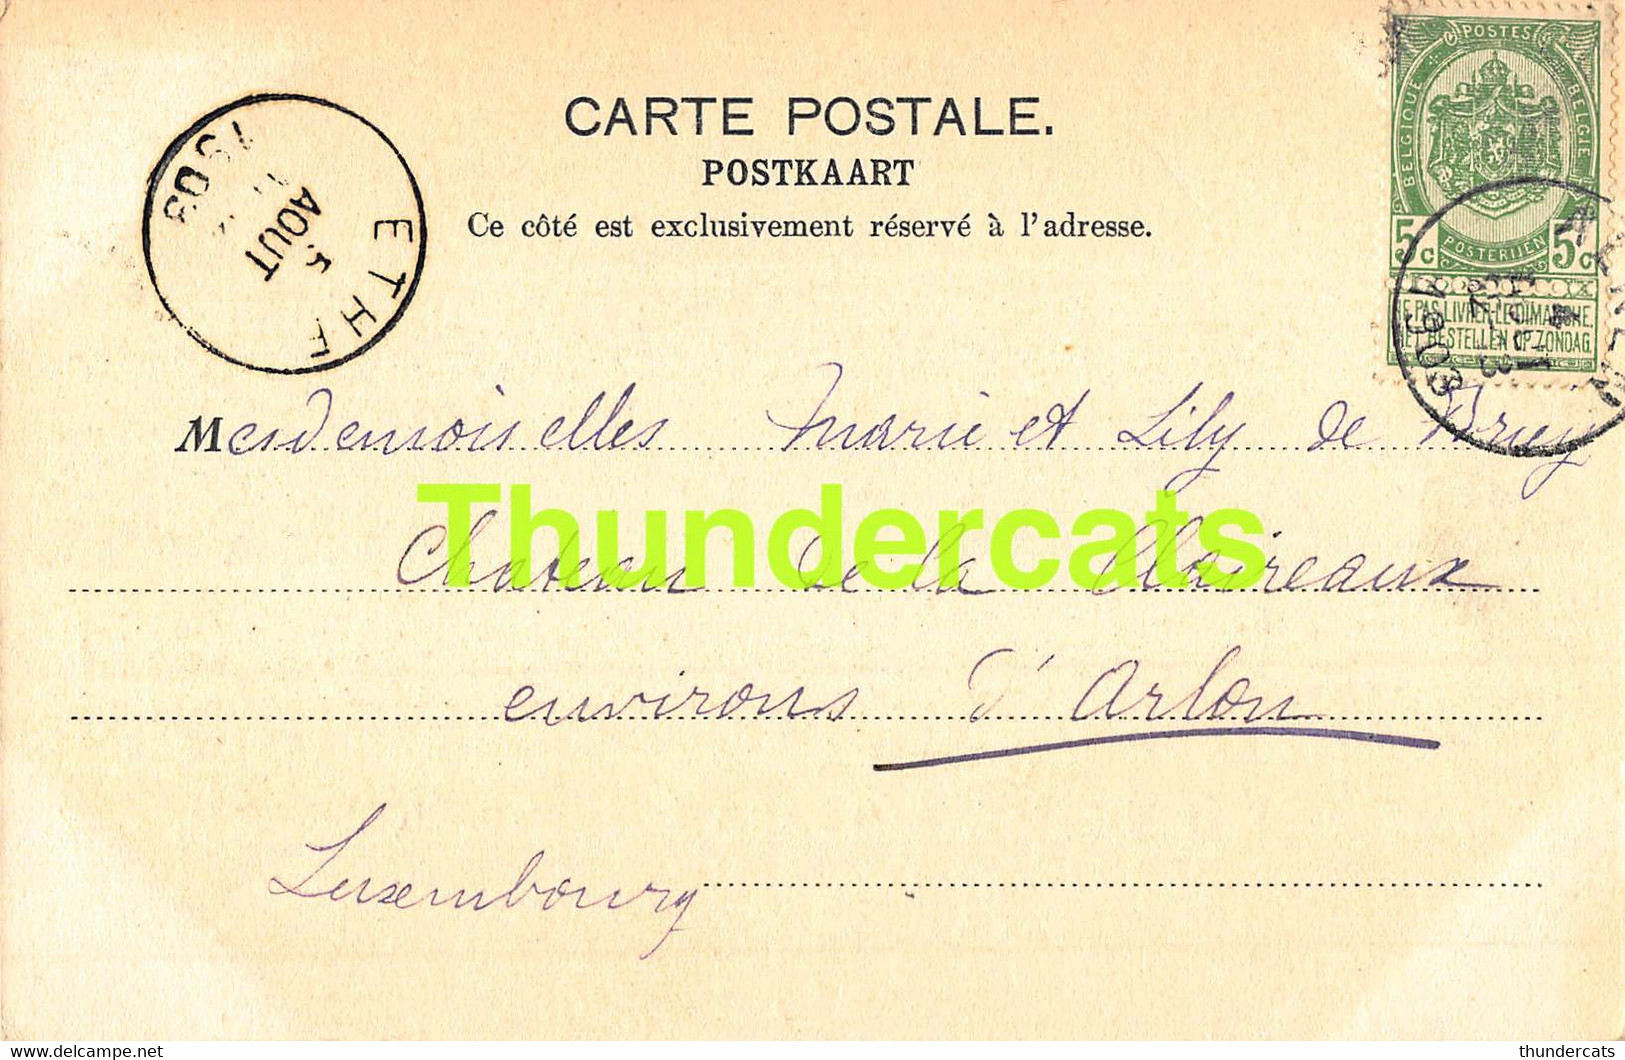 CARTE POSTALE.
POSTKAART
Ce côté est exclusivement réservé à l'adresse.
POSTES
BELGIQUE
BELGIE
5c POSTERIJEN 5c
NE PAS LIVRER LE DIMANCHE.
NIET BESTELLEN OP ZONDAG.
ETHE
5
AOUT
1903
1903
Mesdemoiselles Marie et Lily de Briey
Thundercats
Chateau de la Claireaux
environs d'Arlon
Luxembourg
delcampe.net
thundercats